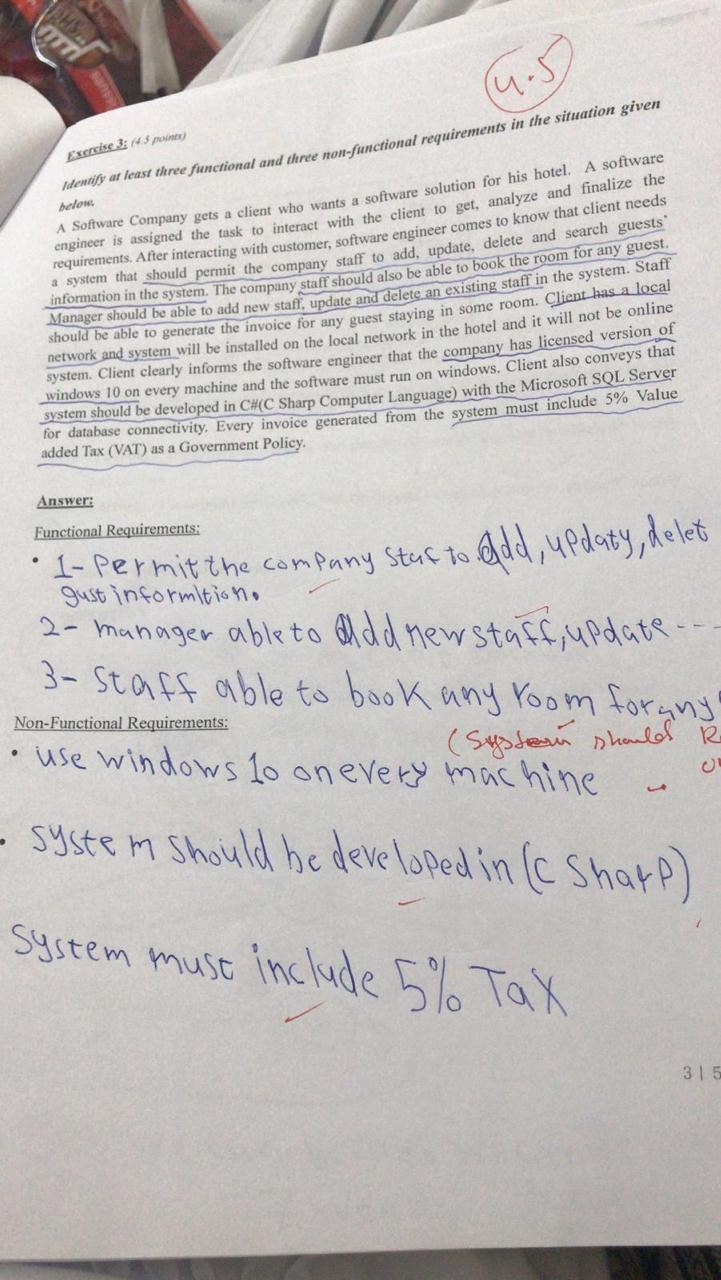 4.5
Exercise 3: (4.5 points)
Identify at least three functional and three non-functional requirements in the situation given
below.
A Software Company gets a client who wants a software solution for his hotel. A software
engineer is assigned the task to interact with the client to get, analyze and finalize the
requirements. After interacting with customer, software engineer comes to know that client needs
a system that should permit the company staff to add, update, delete and search guests'
information in the system. The company staff should also be able to book the room for any guest.
Manager should be able to add new staff, update and delete an existing staff in the system. Staff
should be able to generate the invoice for any guest staying in some room. Client has a local
network and system will be installed on the local network in the hotel and it will not be online
system. Client clearly informs the software engineer that the company has licensed version of
windows 10 on every machine and the software must run on windows. Client also conveys that
system should be developed in C#(C Sharp Computer Language) with the Microsoft SQL Server
for database connectivity. Every invoice generated from the system must include 5% Value
added Tax (VAT) as a Government Policy.
Answer:
Functional Requirements:
• 1- Permit the company staf to add, updaty, delet
gust informition.
2- manager able to Add new staff, update ---
3- Staff able to book any room for any
Non-Functional Requirements:
(System should
• use windows 10 on every machine
• system should be developed in (C Sharp)
System must include 5% Tax
3 | 5